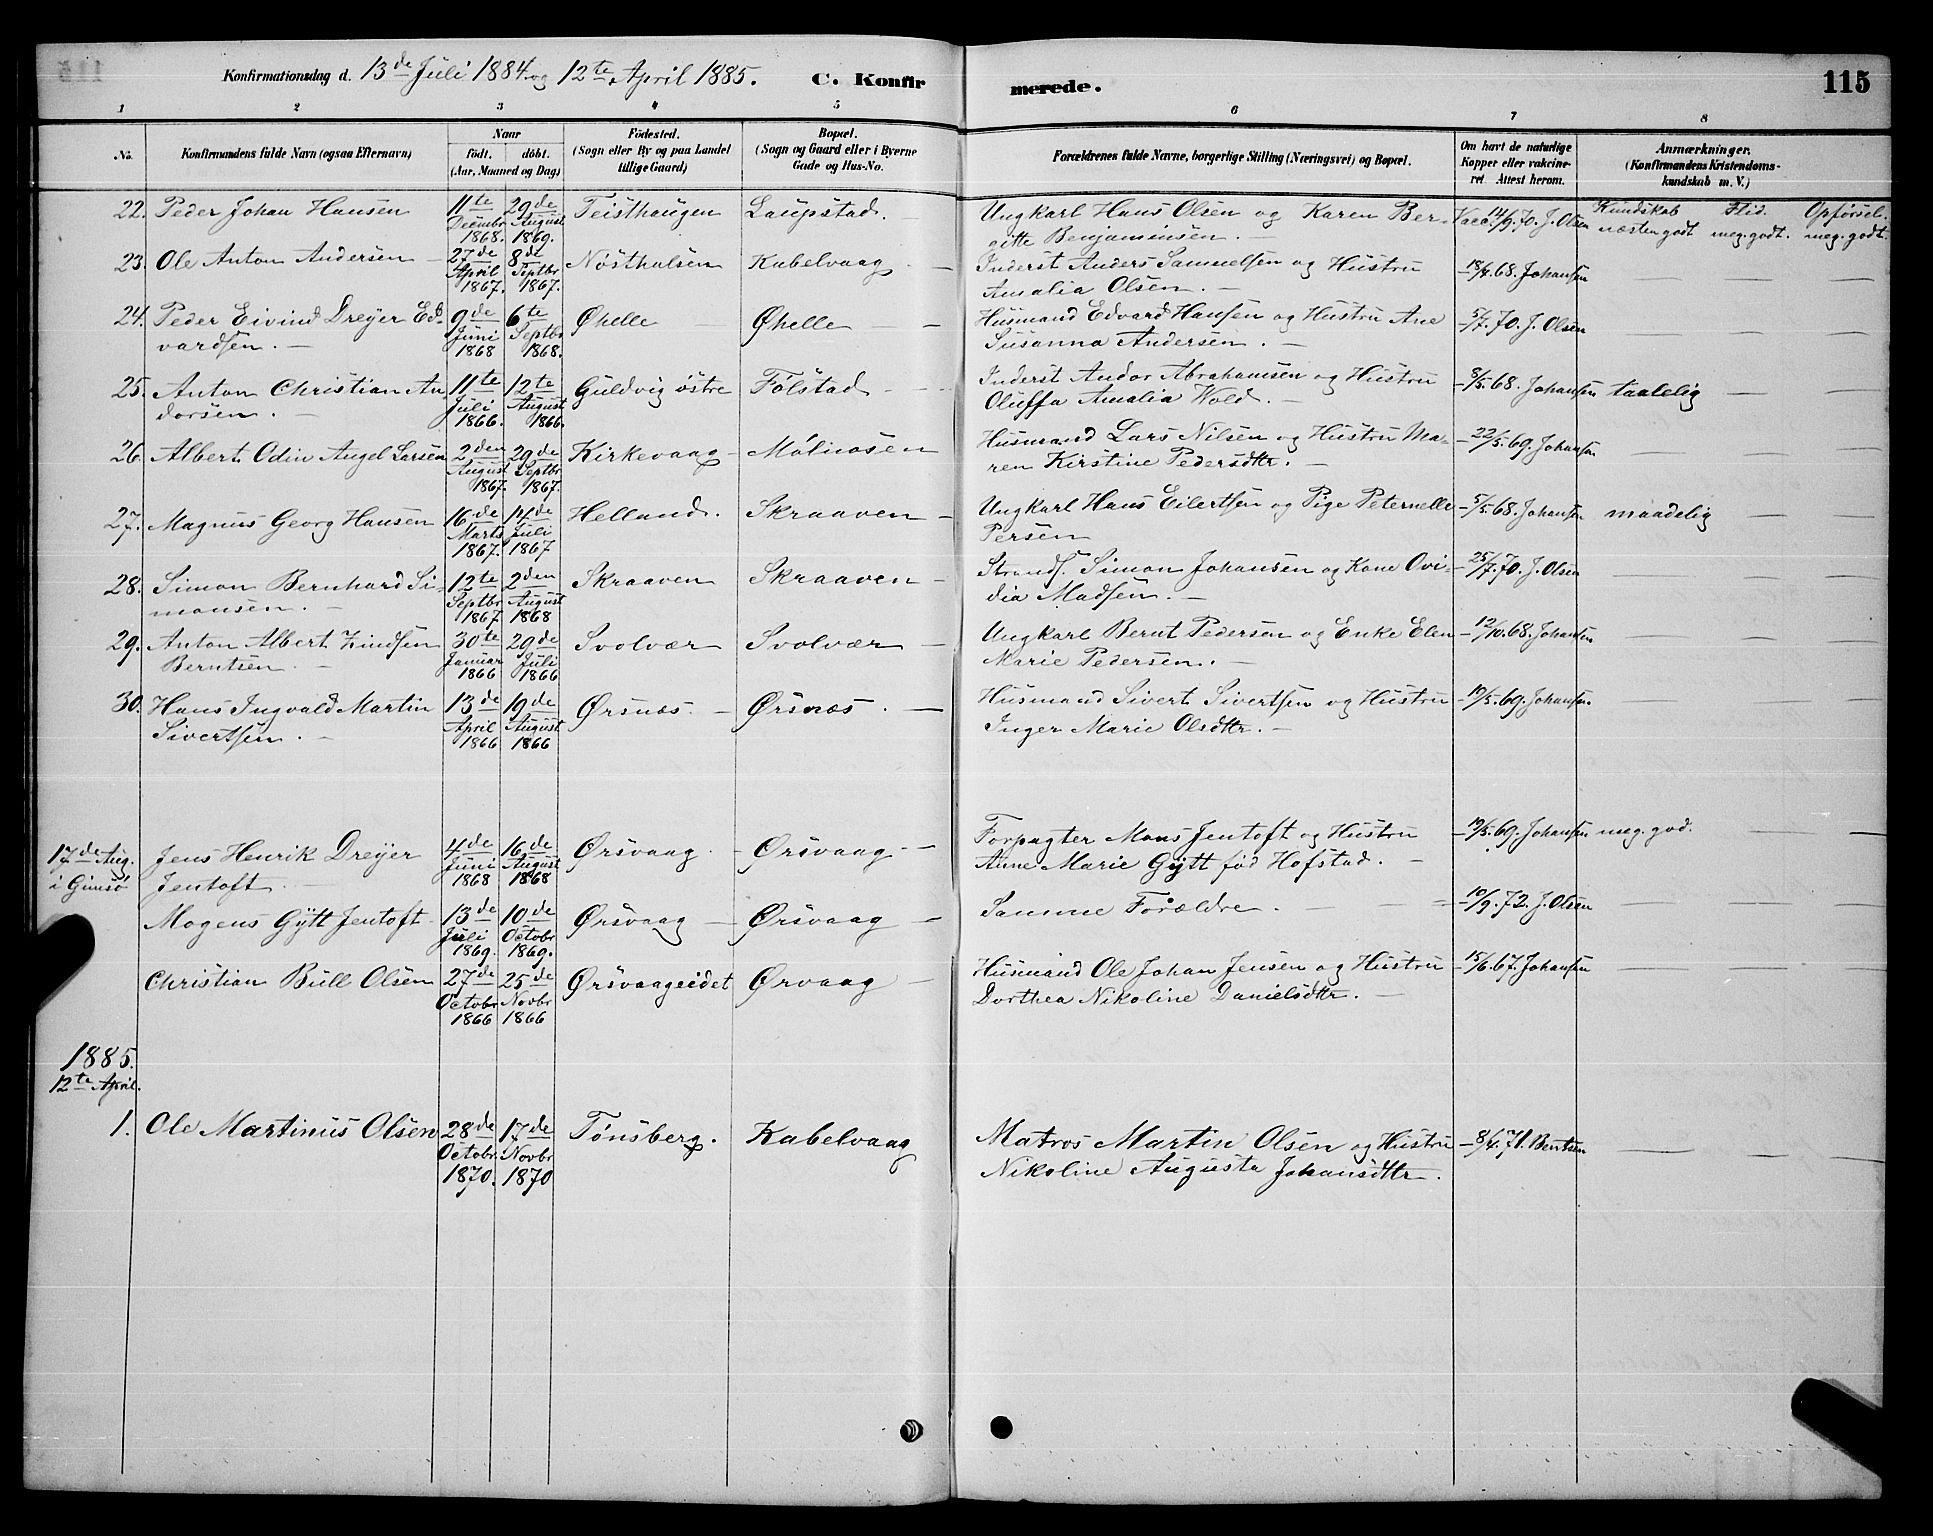 Konfirmationsdag d. 13de Juli 1884 og 12te April 1885. C. Konfirmerede. 115
1 2 3 4 5 6 7 8
No. Konfirmandens fulde Navn (ogsaa Efternavn) Naar født. døbt. (Aar, Maaned og Dag) Fødested. (Sogn eller By og paa Landet tillige Gaard) Bopæl. (Sogn og Gaard eller i Byerne Gade og Hus-No. Forældrenes fulde Navne, borgerlige Stilling (Næringsvei) og Bopæl. Om havt de naturlige Kopper eller vakcineret. Attest herom. Anmærkninger. (Konfirmandens Kristendomskundskab m. V.)
Kundskab Flid. Opførsel.
22. Peder Johan Hansen 11te Decembr 1868. 29de August 1869. Teisthaugen Laupstad. Ungkarl Hans Olsen og Karen Bergitte Benjaminsen. — Vacc. 14/9.70. J. Olsen næsten godt meg. godt. meg. godt.
23. Ole Anton Andersen — 27de April 1867. 8de Septbr 1867. Nøsthalsen Kabelvaag — Inderst Anders Samuelsen og Hustru Amalia Olsen. — — 18/4.68. Johansen — — —
24. Peder Eivind Dreyer Edvardsen. — 9de Juni 1868 6te Septbr 1868. Øhelle — Øhelle — Husmand Edvard Hansen og Hustru Ane Susanna Andersen. — — 5/7.70. J. Olsen — — —
25. Anton Christian Andorsen. — 11te Juli 1866. 12te August 1866. Guldvig østre Følstad — Inderst Andor Abrahamsen og Hustru Oluffa Amalia Wold. — — 8/5.68. Johansen taalelig — —
26. Albert Odin Angel Larsen 2den August 1867. 29de Septbr 1867. Kirkevaag — Mølnosen Husmand Lars Nilsen og Hustru Maren Kirstine Pedersdtr. — — 22/5.69. Johansen — — —
27. Magnus Georg Hansen 16de Marts 1867. 14de Juli 1867 Helland. Skraaven — Ungkarl Hans Eilertsen og Pige Peternelle Persen — 5/5.68. Johansen maadelig — —
28. Simon Bernhard Simonsen. — 12te Septbr 1867 2den August 1868 Skraaven Skraaven — Strands. Simon Johansen og Kone Ovidia Madsen. — — 25/7.70. J. Olsen — — —
29. Anton Albert Zindsen Berntsen. — 30te Januar 1866 29de Juli 1866 Svolvær Svolvær — Ungkarl Bernt Pedersen og Enke Elen Marie Pedersen. — — 12/10.68. Johansen — — —
30. Hans Ingvald Martin Sivertsen. — 13de April 1866 19de August 1866 Ørsnæs. — Ørsnæs. — Husmand Sivert Sivertsen og Hustru Inger Marie Olsdtr. — — 19/5.69. Johansen — — —
17de Aug. i Gimsø Jens Henrik Dreyer Jentoft — 4de Juni 1868 16de August 1868 Ørsvaag — Ørsvaag — Forpagter Mons Jentoft og Hustru Anne Marie Gytt fød Hofstad. — — 19/5.69. Johansen meg. god. — —
Mogens Gytt Jentoft 13de Juli 1869. 10de Octobr 1869. Ørsvaag — Ørsvaag — Samme Forældre. — — 10/9.72. J. Olsen — — —
Christian Bull Olsen 27de Octobr 1866 25de Novbr 1866 Ørsvaageidet Ørvaag — Husmand Ole Johan Jensen og Hustru Dorthea Nikoline Danielsdtr. — — 15/6.67. Johansen — — —
1885.
12te April.
1. Ole Martinus Olsen 28de Octobr. 1870. 17de Novbr 1870 Tønsberg. Kabelvaag Matros Martin Olsen og Hustru Nikoline Augusta Johansdtr. — 8/4.71. Bentsen — — —